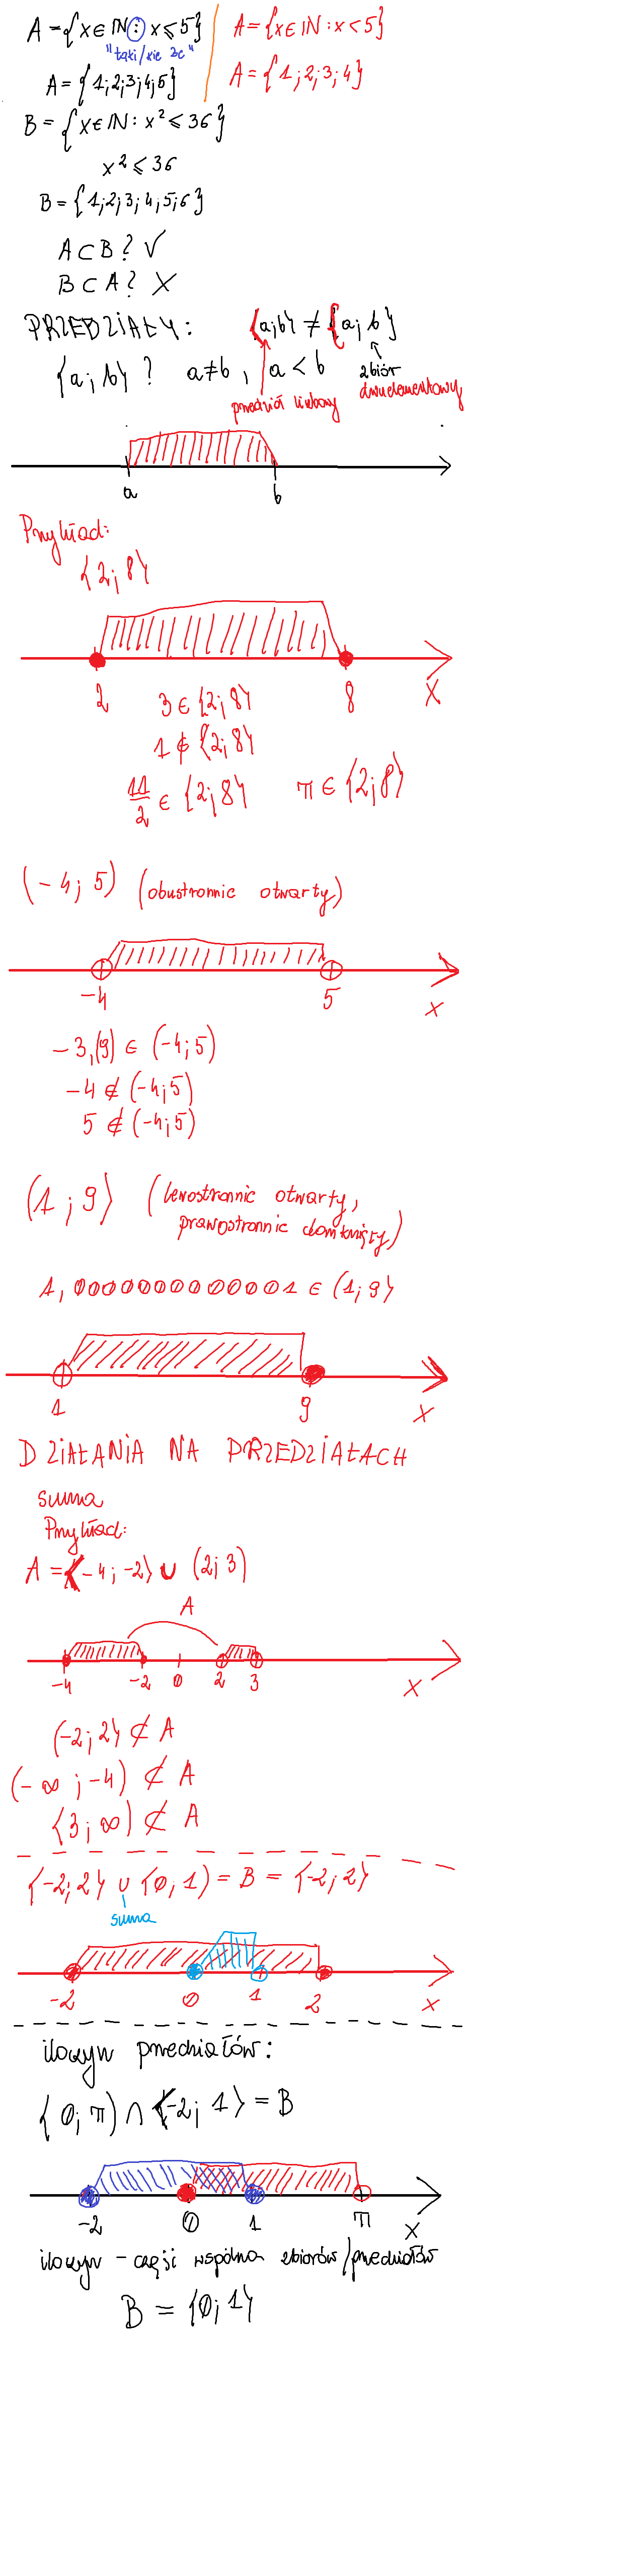 A = {x ∈ ℕ : x ⩽ 5}
"taki/kie że"
A = {1;2;3;4;5}
A = {x ∈ ℕ : x < 5}
A = {1;2;3;4}
B = {x ∈ ℕ : x² ⩽ 36}
x² ⩽ 36
B = {1;2;3;4;5;6}
A ⊂ B? ✓
B ⊂ A? ✗
PRZEDZIAŁY:
⟨a;b⟩ ≠ {a;b}
⟨a;b⟩ ? a≠b, a < b
przedział liczbowy
zbiór
dwuelementowy
a b
Przykład:
⟨2;8⟩
2 8 x
3 ∈ ⟨2;8⟩
1 ∉ ⟨2;8⟩
11/2 ∈ ⟨2;8⟩ π ∈ ⟨2;8⟩
(-4;5) (obustronnie otwarty)
-4 5 x
-3,(9) ∈ (-4;5)
-4 ∉ (-4;5)
5 ∉ (-4;5)
(1;9⟩ (lewostronnie otwarty,
prawostronnie domknięty)
1,0000000000001 ∈ (1;9⟩
1 9 x
DZIAŁANIA NA PRZEDZIAŁACH
suma
Przykład:
A = ⟨-4;-2⟩ ∪ (2;3)
A
-4 -2 0 2 3 x
(-2;2⟩ ⊄ A
(-∞;-4) ⊄ A
⟨3;∞) ⊄ A
⟨-2;2⟩ ∪ ⟨0,1) = B = ⟨-2;2⟩
suma
-2 0 1 2 x
iloczyn przedziałów:
⟨0;π) ∩ ⟨-2;1⟩ = B
-2 0 1 π x
iloczyn - część wspólna zbiorów/przedziałów
B = ⟨0;1⟩